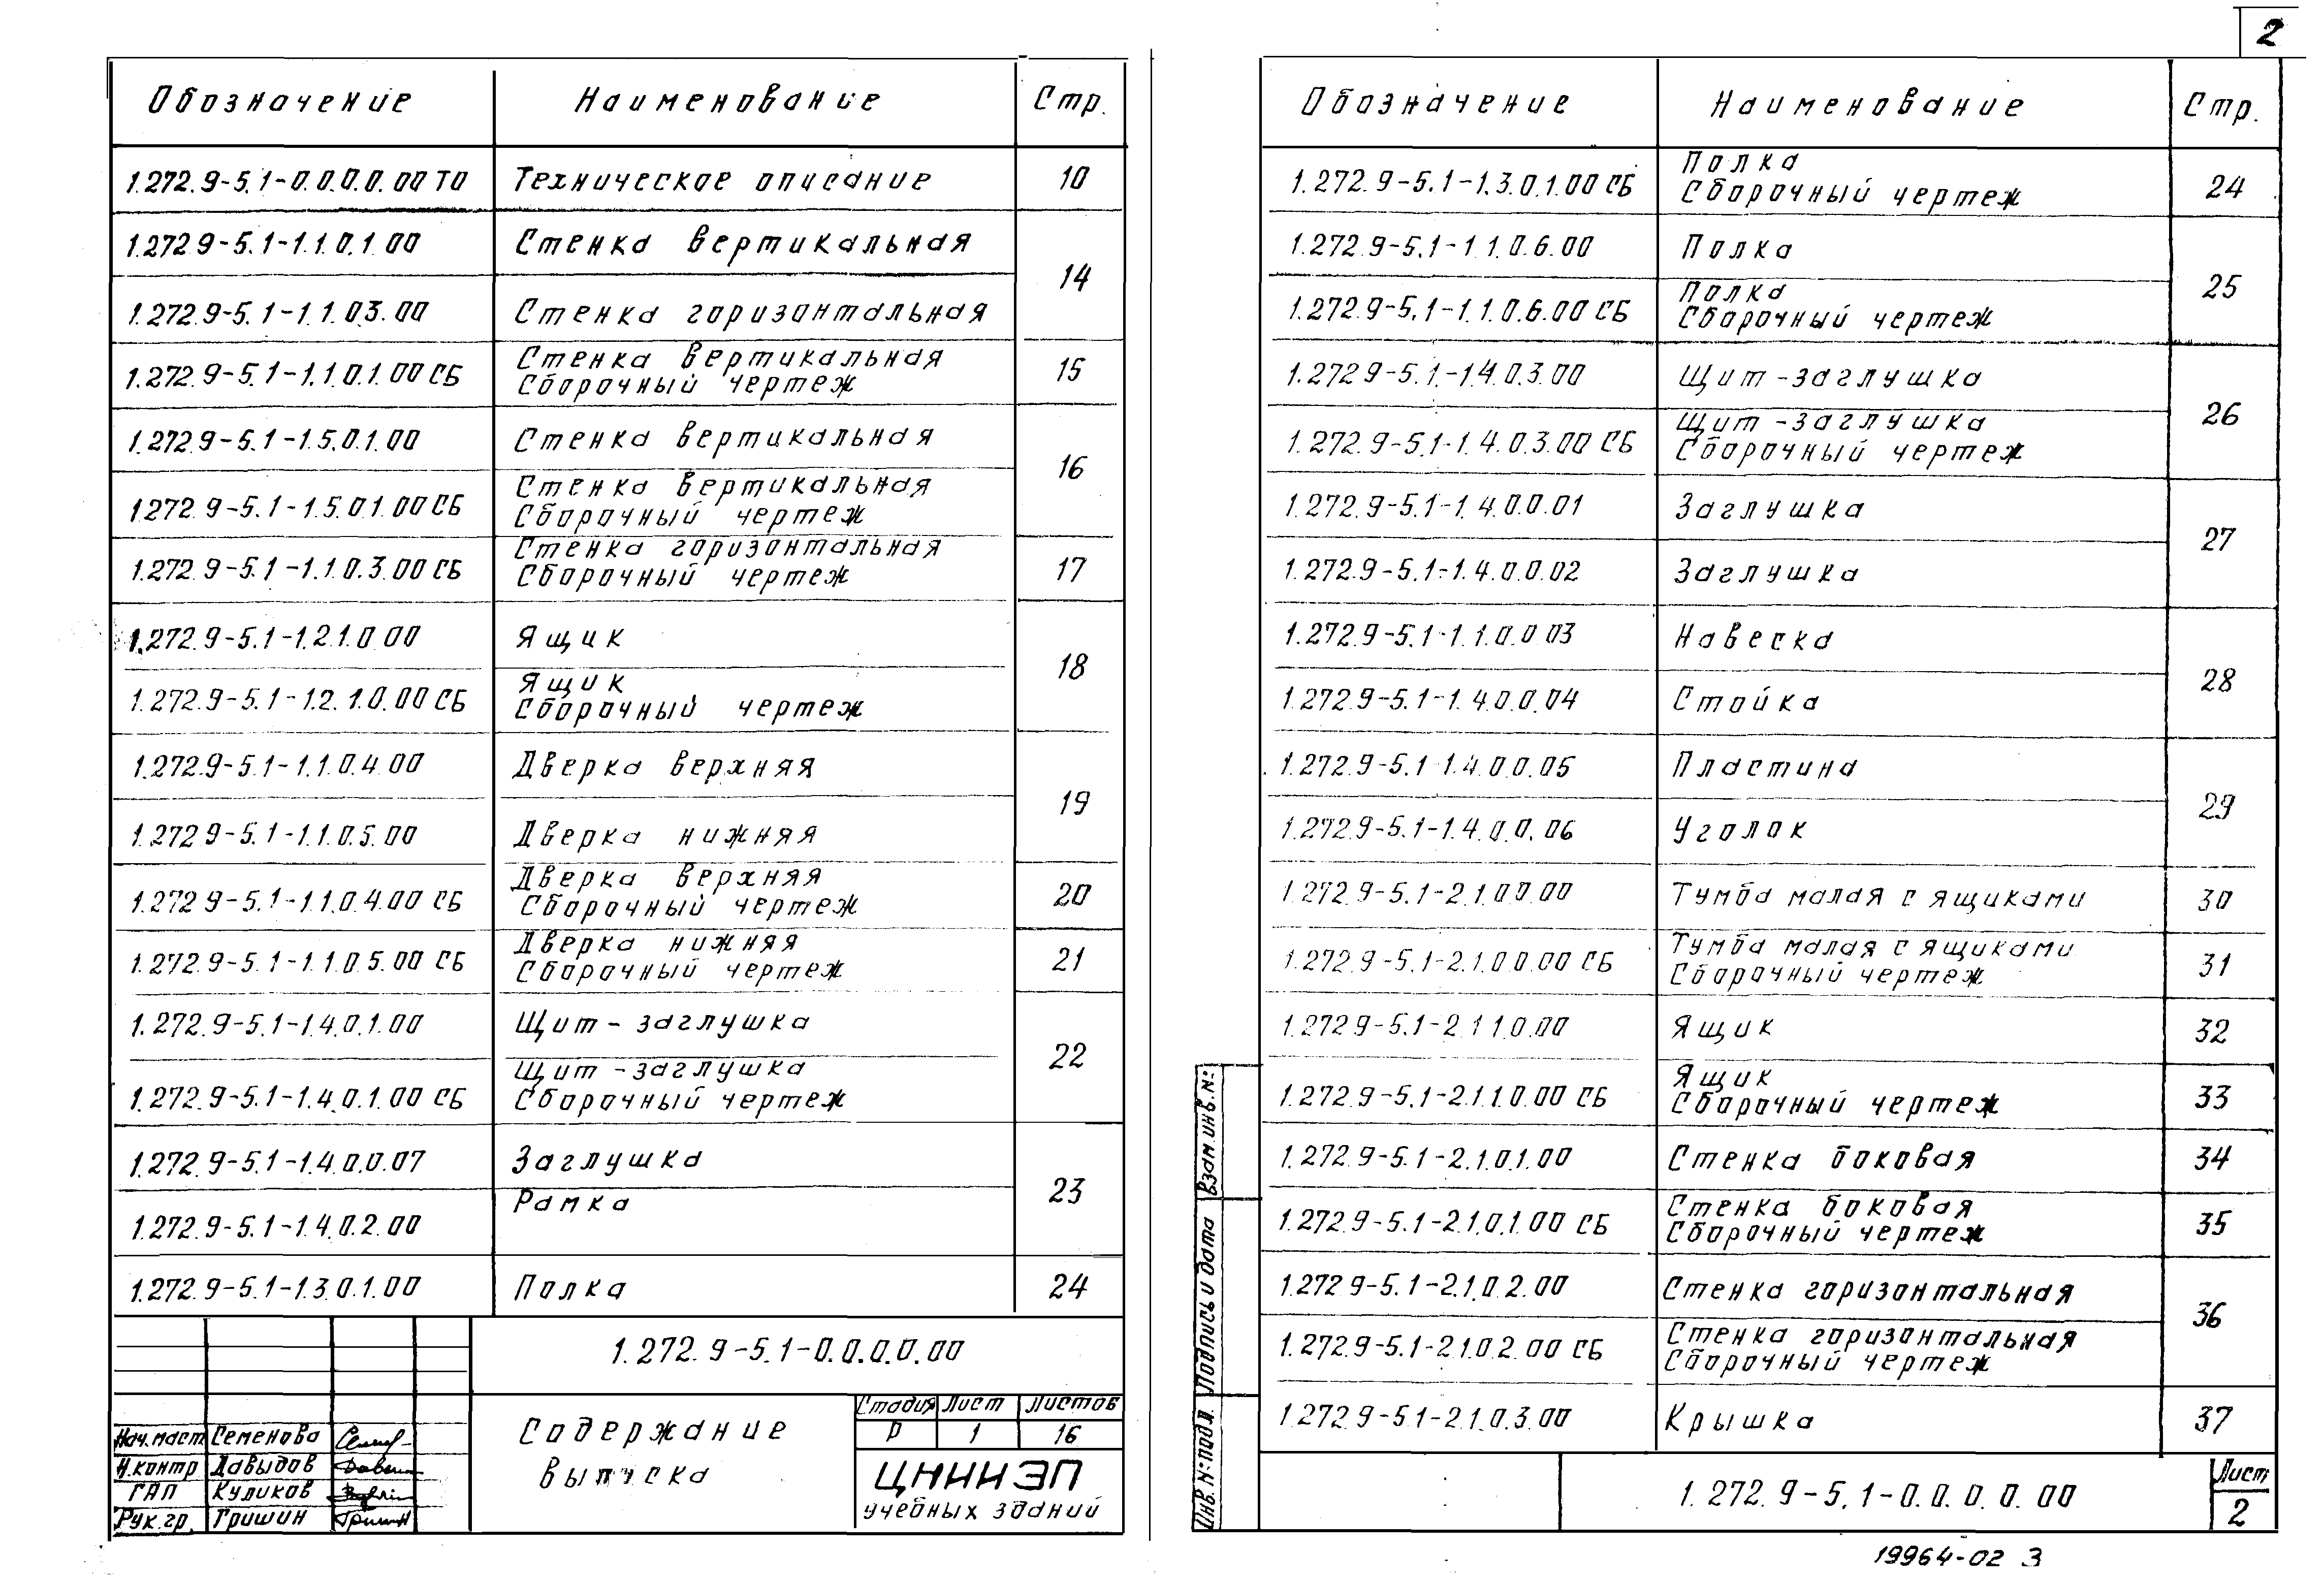 2
Обозначение Наименование Стр.
1.272.9-5.1-0.0.0.0.00 ТО Техническое описание 10
1.272.9-5.1-1.1.0.1.00 Стенка вертикальная 14
1.272.9-5.1-1.1.0.3.00 Стенка горизонтальная
1.272.9-5.1-1.1.0.1.00 СБ Стенка вертикальная
Сборочный чертеж 15
1.272.9-5.1-1.5.0.1.00 Стенка вертикальная 16
1.272.9-5.1-1.5.0.1.00 СБ Стенка вертикальная
Сборочный чертеж
1.272.9-5.1-1.1.0.3.00 СБ Стенка горизонтальная
Сборочный чертеж 17
1.272.9-5.1-1.2.1.0.00 Ящик 18
1.272.9-5.1-1.2.1.0.00 СБ Ящик
Сборочный чертеж
1.272.9-5.1-1.1.0.4.00 Дверка верхняя 19
1.272.9-5.1-1.1.0.5.00 Дверка нижняя
1.272.9-5.1-1.1.0.4.00 СБ Дверка верхняя
Сборочный чертеж 20
1.272.9-5.1-1.1.0.5.00 СБ Дверка нижняя
Сборочный чертеж 21
1.272.9-5.1-1.4.0.1.00 Щит-заглушка 22
1.272.9-5.1-1.4.0.1.00 СБ Щит-заглушка
Сборочный чертеж
1.272.9-5.1-1.4.0.0.07 Заглушка 23
1.272.9-5.1-1.4.0.2.00 Рамка
1.272.9-5.1-1.3.0.1.00 Полка 24
1.272.9-5.1-0.0.0.0.00
Содержание
выпуска
Стадия Лист Листов
Р 1 16
ЦНИИЭП
учебных зданий
Нач.маст Семенова
Н.контр Давыдов
ГАП Куликов
Рук.гр. Гришин
Обозначение Наименование Стр.
1.272.9-5.1-1.3.0.1.00 СБ Полка
Сборочный чертеж 24
1.272.9-5.1-1.1.0.6.00 Полка 25
1.272.9-5.1-1.1.0.6.00 СБ Полка
Сборочный чертеж
1.272.9-5.1-1.4.0.3.00 Щит-заглушка 26
1.272.9-5.1-1.4.0.3.00 СБ Щит-заглушка
Сборочный чертеж
1.272.9-5.1-1.4.0.0.01 Заглушка 27
1.272.9-5.1-1.4.0.0.02 Заглушка
1.272.9-5.1-1.1.0.0.03 Навеска 28
1.272.9-5.1-1.4.0.0.04 Стойка
1.272.9-5.1-1.4.0.0.05 Пластина 29
1.272.9-5.1-1.4.0.0.06 Уголок
1.272.9-5.1-2.1.0.0.00 Тумба малая с ящиками 30
1.272.9-5.1-2.1.0.0.00 СБ Тумба малая с ящиками
Сборочный чертеж 31
1.272.9-5.1-2.1.1.0.00 Ящик 32
1.272.9-5.1-2.1.1.0.00 СБ Ящик
Сборочный чертеж 33
1.272.9-5.1-2.1.0.1.00 Стенка боковая 34
1.272.9-5.1-2.1.0.1.00 СБ Стенка боковая
Сборочный чертеж 35
1.272.9-5.1-2.1.0.2.00 Стенка горизонтальная 36
1.272.9-5.1-2.1.0.2.00 СБ Стенка горизонтальная
Сборочный чертеж
1.272.9-5.1-2.1.0.3.00 Крышка 37
Взам.инв.№
Подпись и дата
Инв.№подл.
1.272.9-5.1-0.0.0.0.00
Лист
2
19964-02 3